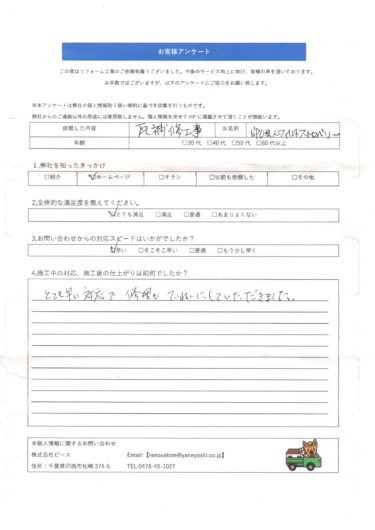 お客様アンケート
この度はリフォーム工事のご依頼有難うございました。今後のサービス向上に向け、皆様の声を頂いております。
お手数ではございますが、以下のアンケートにご協力をお願い致します。
※本アンケートは弊社の個人情報取り扱い規約に基づき収集を行うものです。
弊社からのご連絡以外の用途には使用致しません。個人情報を伏せて HP に掲載させて頂くことが御座います。
依頼した内容 瓦補修工事 お名前 NPO法人ワイルドストロベリー
年齢 □30 代 □40 代 □50 代 □60 代以上
1.弊社を知ったきっかけ
□紹介 ☑ホームページ □チラシ □以前も依頼した □その他
2.全体的な満足度を教えてください。
☑とても満足 □満足 □普通 □あまりよくない
3.お問い合わせからの対応スピードはいかがでしたか?
☑早い □そこそこ早い □普通 □もう少し早く
4.施工中の対応、施工後の仕上がりは如何でしたか?
とても早い対応で 修理も ていねいにしていただきました。
※個人情報に関するお問い合わせ
株式会社ピース Email:【renovation@yaneyoshi.co.jp】
住所:千葉県印西市松崎 374-5 TEL:0476-45-1027